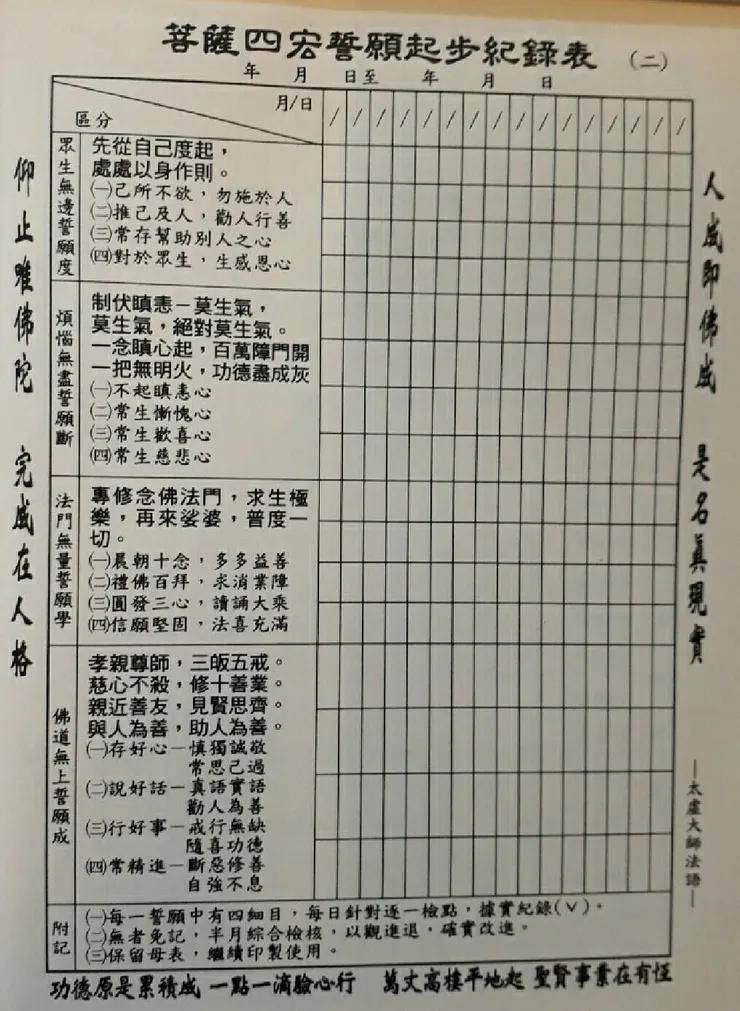 菩薩四宏誓願起步紀錄表 (二)
年 月 日至 年 月 日
月/日
區分
/ / / / / / / / / / / / / / / /
眾生無邊誓願度
先從自己度起，
處處以身作則。
㈠己所不欲，勿施於人
㈡推己及人，勸人行善
㈢常存幫助別人之心
㈣對於眾生，生感恩心
煩惱無盡誓願斷
制伏瞋恚－莫生氣，
莫生氣，絕對莫生氣。
一念瞋心起，百萬障門開
一把無明火，功德盡成灰
㈠不起瞋恚心
㈡常生慚愧心
㈢常生歡喜心
㈣常生慈悲心
法門無量誓願學
專修念佛法門，求生極
樂，再來娑婆，普度一
切。
㈠晨朝十念，多多益善
㈡禮佛百拜，求消業障
㈢圓發三心，讀誦大乘
㈣信願堅固，法喜充滿
佛道無上誓願成
孝親尊師，三皈五戒。
慈心不殺，修十善業。
親近善友，見賢思齊。
與人為善，助人為善。
㈠存好心－慎獨誠敬
常思己過
㈡說好話－真語實語
勸人為善
㈢行好事－戒行無缺
隨喜功德
㈣常精進－斷惡修善
自強不息
附記
㈠每一誓願中有四細目，每日針對逐一檢點，據實紀錄(∨)。
㈡無者免記，半月綜合檢核，以觀進退，確實改進。
㈢保留母表，繼續印製使用。
仰止唯佛陀 完成在人格
人成即佛成 是名真現實
—太虛大師法語—
功德原是累積成 一點一滴驗心行 萬丈高樓平地起 聖賢事業在有恆